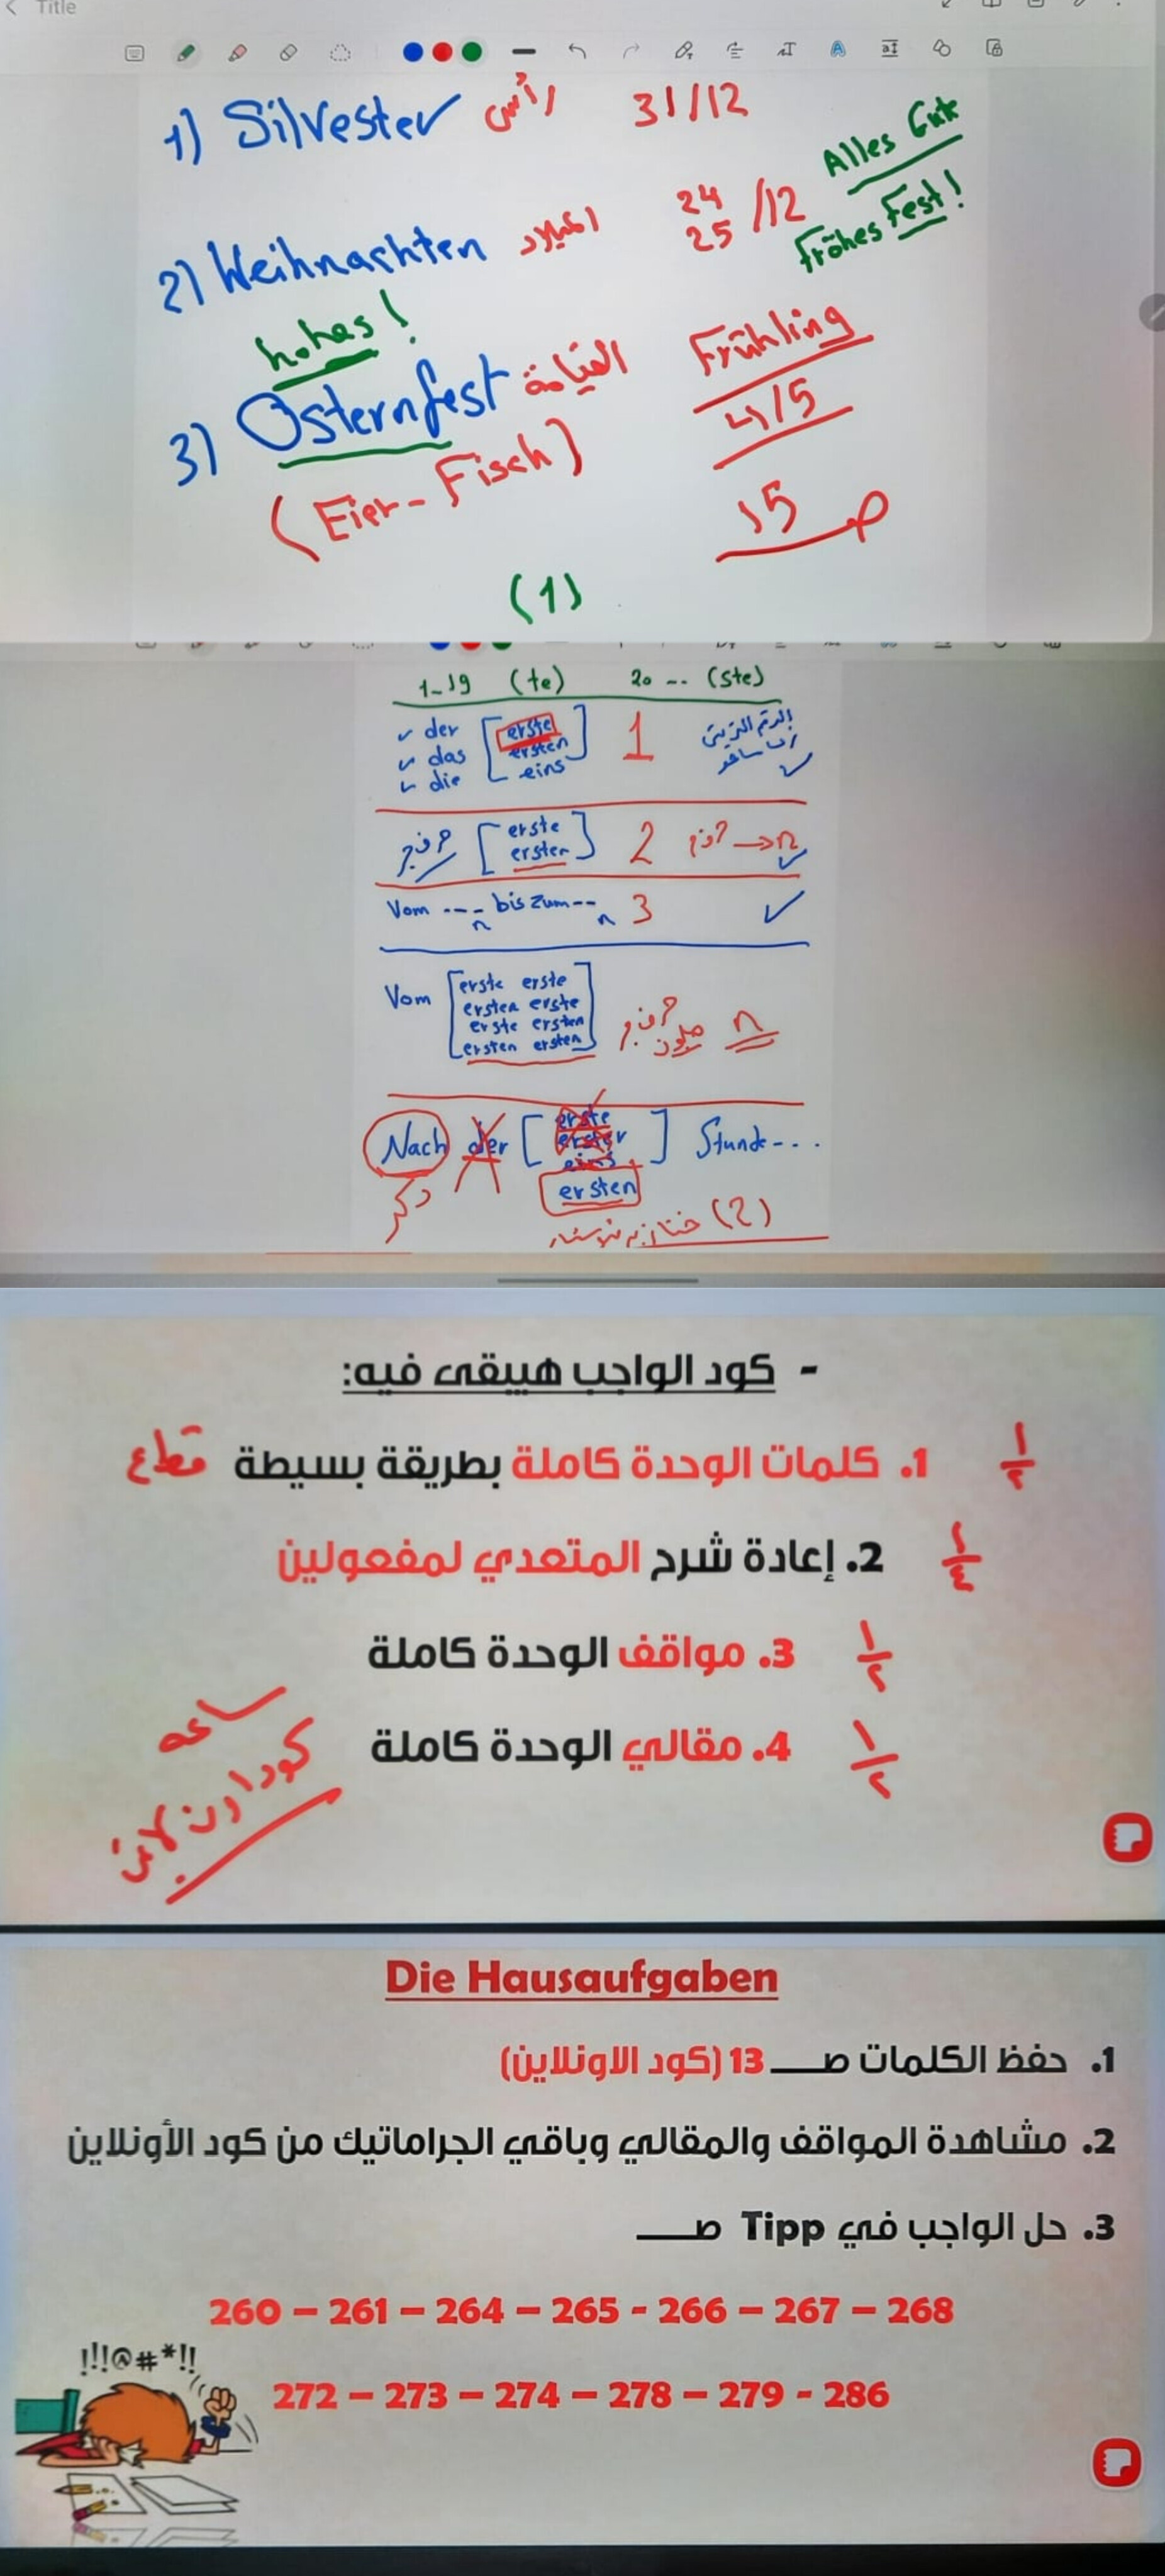 Title
1) Silvester رأس 31/12
Alles Gute
2) Weihnachten الميلاد 24 25 /12
Fröhes Fest!
hohes!
3) Osternfest القيامة Frühling
4/5
(Eier - Fisch)
15
(1)
1-19 (te) 20 -- (ste)
der
das
die
[erste
ersten
eins] 1
[erste
ersten] 2 → n
Vom ---n bis zum --n 3
Vom [erste erste
ersten erste
erste ersten
ersten ersten] n
Nach der [erste
erster
eins
ersten] Stunde - - -
(2)
- كود الواجب هيبقى فيه:
1. كلمات الوحدة كاملة بطريقة بسيطة قطاع ١/٢
2. إعادة شرح المتعدي لمفعولين
3. مواقف الوحدة كاملة ١/٢
4. مقالي الوحدة كاملة ١/٢
ساعه
كود اون لاين
Die Hausaufgaben
1. حفظ الكلمات صــــ 13 (كود الاونلاين)
2. مشاهدة المواقف والمقالي وباقي الجراماتيك من كود الأونلاين
3. حل الواجب في Tipp صــــ
260 – 261 – 264 – 265 - 266 – 267 – 268
!!!@#*!!
272 – 273 – 274 – 278 – 279 - 286